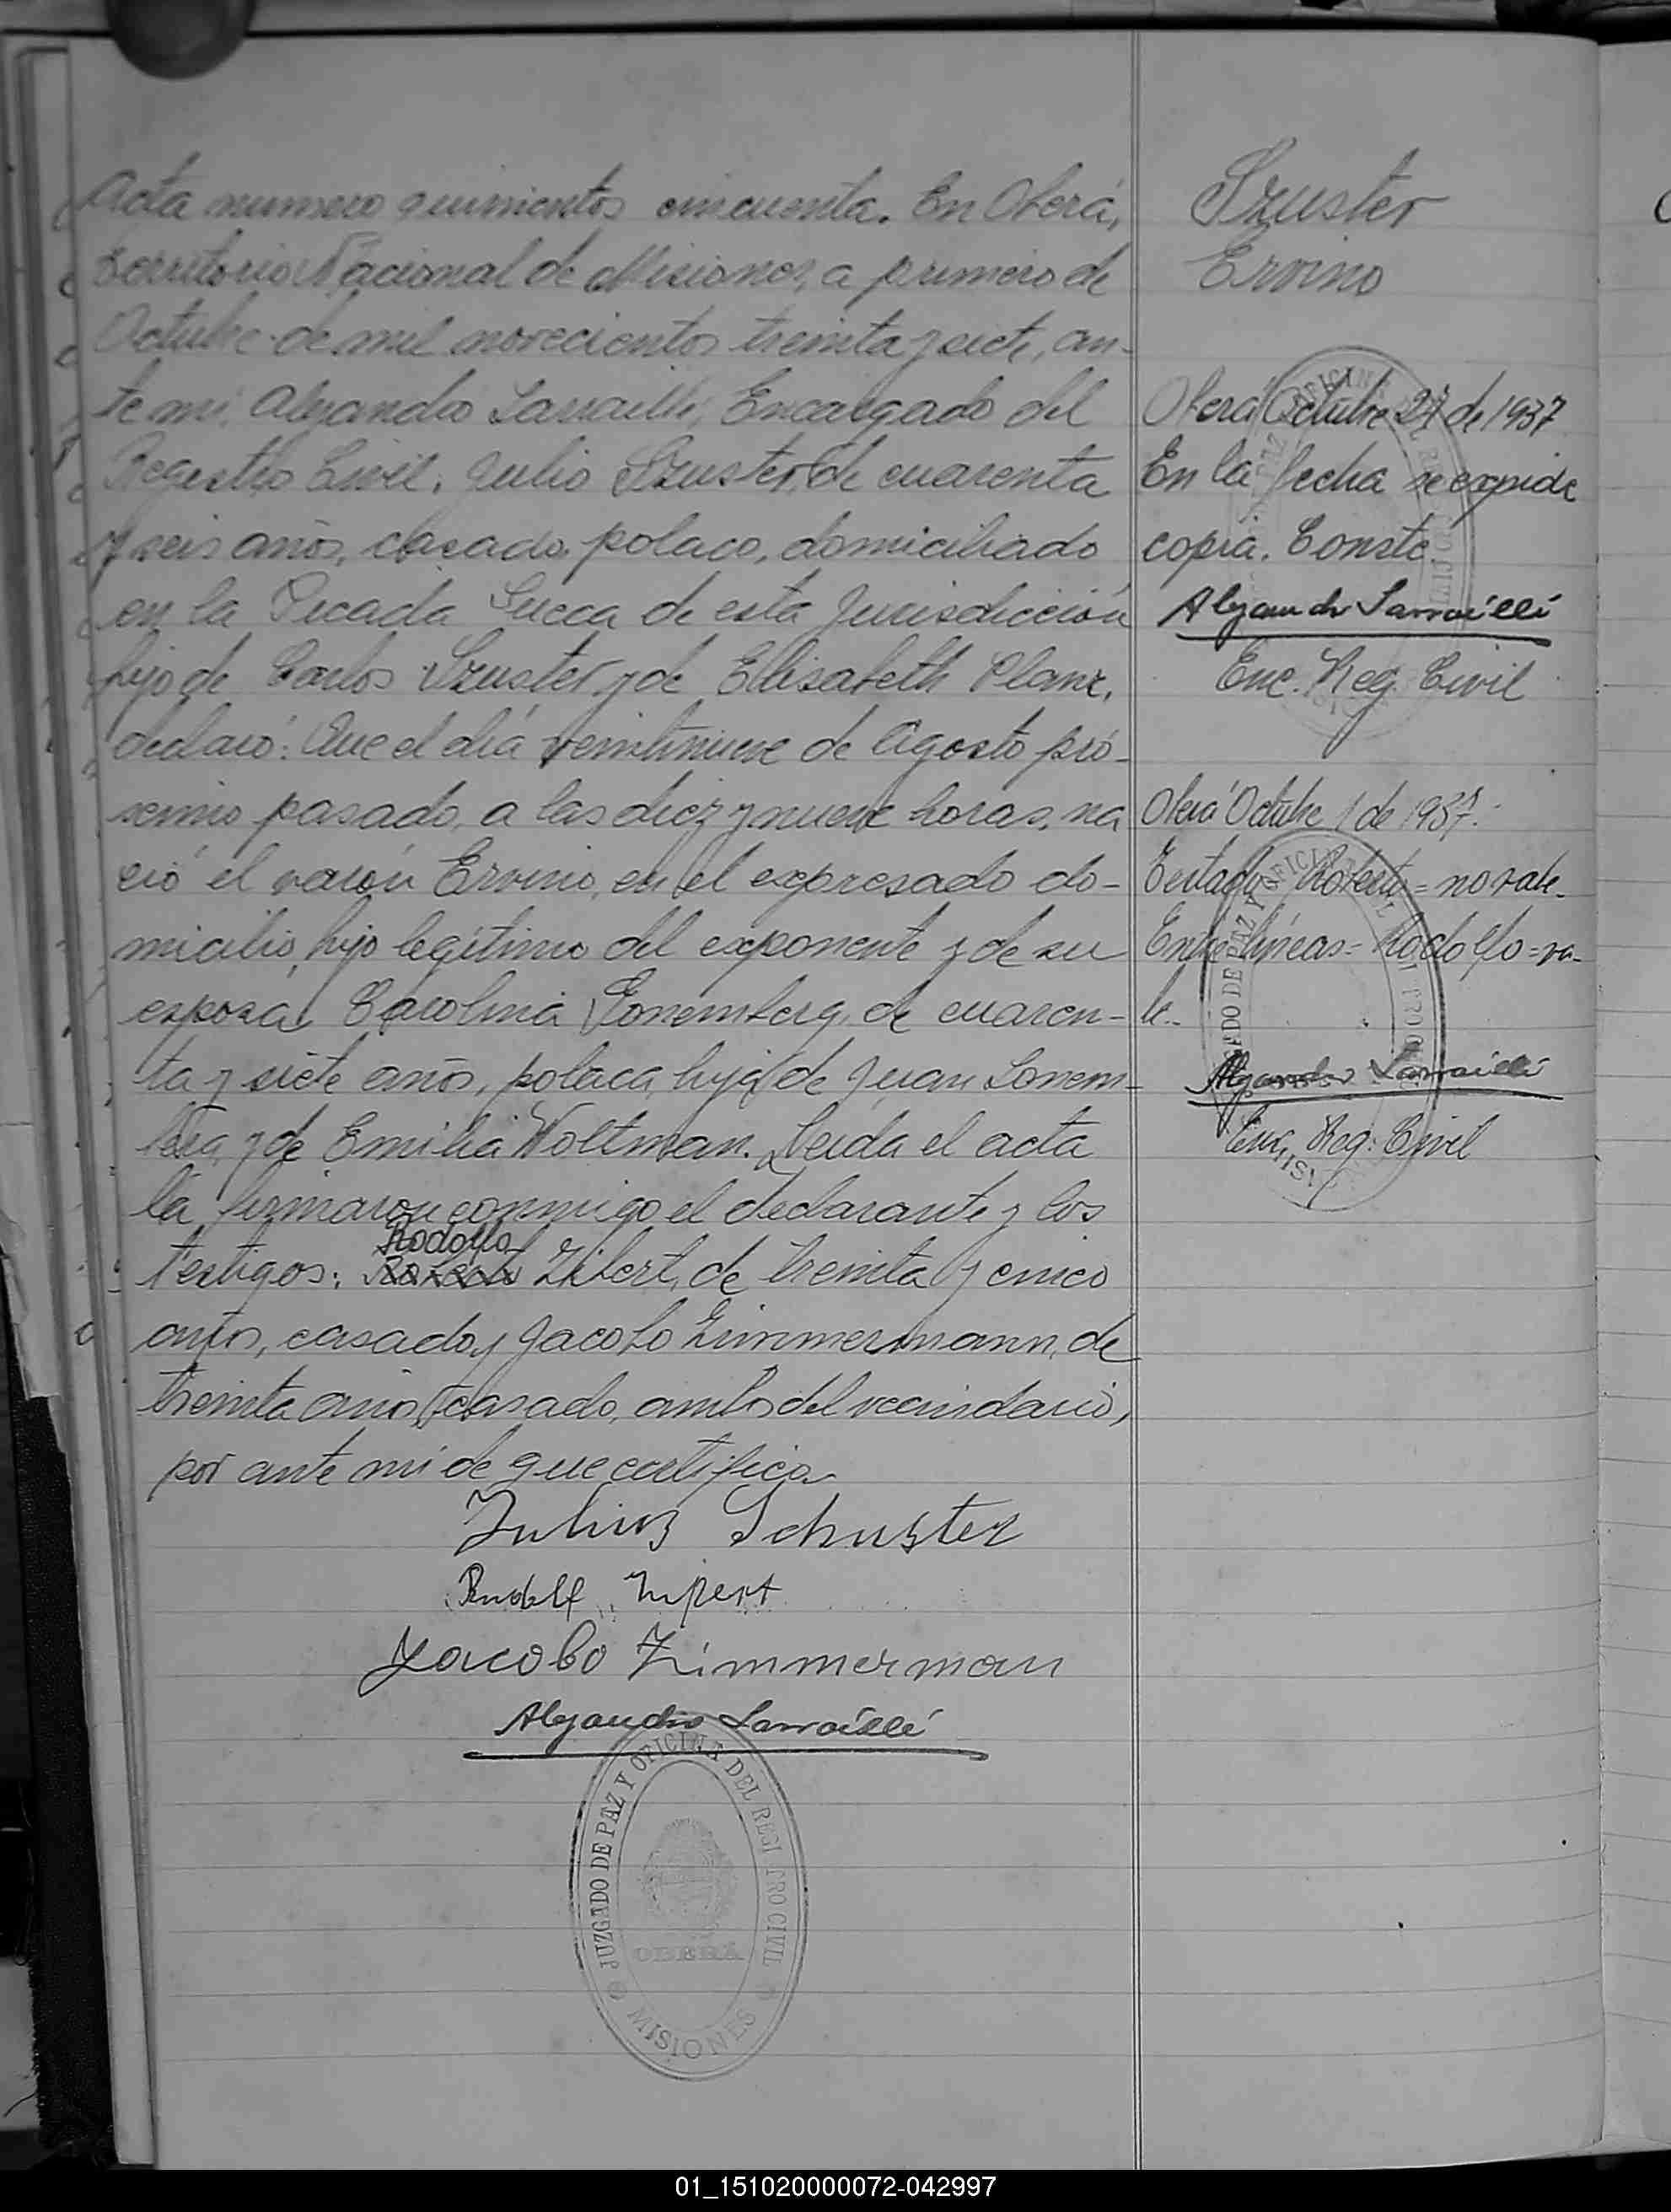 Acta numero quinientos cincuenta. En Oberá,
territorio Nacional de Misiones, a primero de
Octubre de mil novecientos treinta y siete, an-
te mí, Alejandro Sarraillé, Encargado del
Registro Civil, Julio Szuster, de cuarenta
y seis años, casado, polaco, domiciliado
en la Picada Sueca de esta Jurisdicción
hijo de Carlos Szuster y de Elisabeth Planz,
declaró: Que el día veintinueve de Agosto pró-
semio pasado, a las diez y nueve horas, na
ció el varón Ervino, en el expresado do-
micilio, hijo legítimo del exponente y de su
esposa Carolina Sonemberg, de cuaren-
ta y siete años, polaca, hija de Juan Sonem-
berg y de Emilia Woltman. Leida el acta
la firmaron conmigo el declarante y los
Rodolfo
testigos: Roberto Zibert, de treinta y cinco
años, casado y Jacobo Zimmermann, de
treinta años, casado, ambos del vecindario,
por ante mí de que certifico.
Julius Schuster
Rudolf
Jacobo Zimmerman
Alejandro Sarraillé
JUZGADO DE PAZ Y OFICINA DEL REGISTRO CIVIL
OBERÁ
MISIONES
Szuster
Ervino
Oberá Octubre 27 de 1937
En la fecha se expide
copia. Conste.
Alejandro Sarraillé
Enc. Reg. Civil
Oberá Octubre 1 de 1937.
Testado = Roberto = no vale.
Entre líneas = Rodolfo = va-
le.
Alejandro Sarraillé
Enc. Reg. Civil
01_151020000072-042997